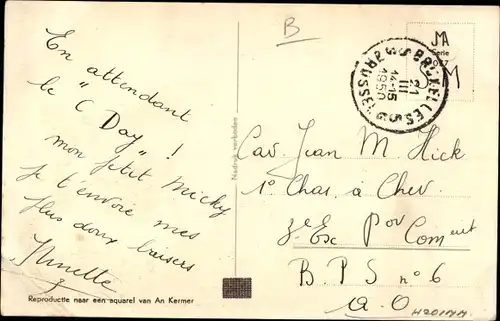 En attendant
le "C Day" !
mon petit Micky
je t'envoie mes
plus doux baisers
Reproductie naar een aquarel van An Kermer
Nadruk verboden
B
MA
Serie
M
BRUXELLES
21
III
14-15
1950
BRUSSEL
Cav. Jean M. Hick
1º Chas. à Chev.
Esc Pov Com
B.P.S nº 6
a.O